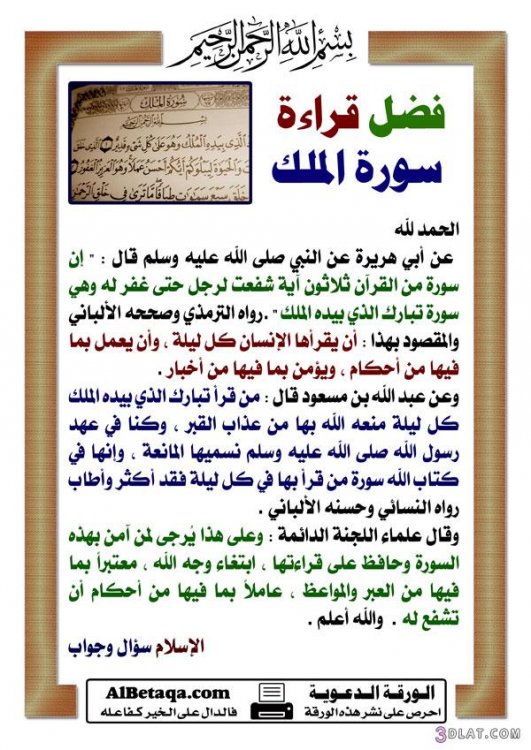 بسم الله الرحمن الرحيم
فضل قراءة
سورة الملك
سورة الملك
الحمد لله
عن أبي هريرة عن النبي صلى الله عليه وسلم قال : " إن
سورة من القرآن ثلاثون آية شفعت لرجل حتى غفر له وهي
سورة تبارك الذي بيده الملك " .رواه الترمذي وصححه الألباني
والمقصود بهذا : أن يقرأها الإنسان كل ليلة ، وأن يعمل بما
فيها من أحكام ، ويؤمن بما فيها من أخبار .
وعن عبد الله بن مسعود قال : من قرأ تبارك الذي بيده الملك
كل ليلة منعه الله بها من عذاب القبر ، وكنا في عهد
رسول الله صلى الله عليه وسلم نسميها المانعة ، وإنها في
كتاب الله سورة من قرأ بها في كل ليلة فقد أكثر وأطاب
رواه النسائي وحسنه الألباني .
وقال علماء اللجنة الدائمة : وعلى هذا يُرجى لمن آمن بهذه
السورة وحافظ على قراءتها ، ابتغاء وجه الله ، معتبراً بما
فيها من العبر والمواعظ ، عاملاً بما فيها من أحكام أن
تشفع له . والله أعلم .
الإسلام سؤال وجواب
الورقة الدعوية
احرص على نشر هذه الورقة
AlBetaqa.com
فالدال على الخير كفاعله
3DLAT.COM